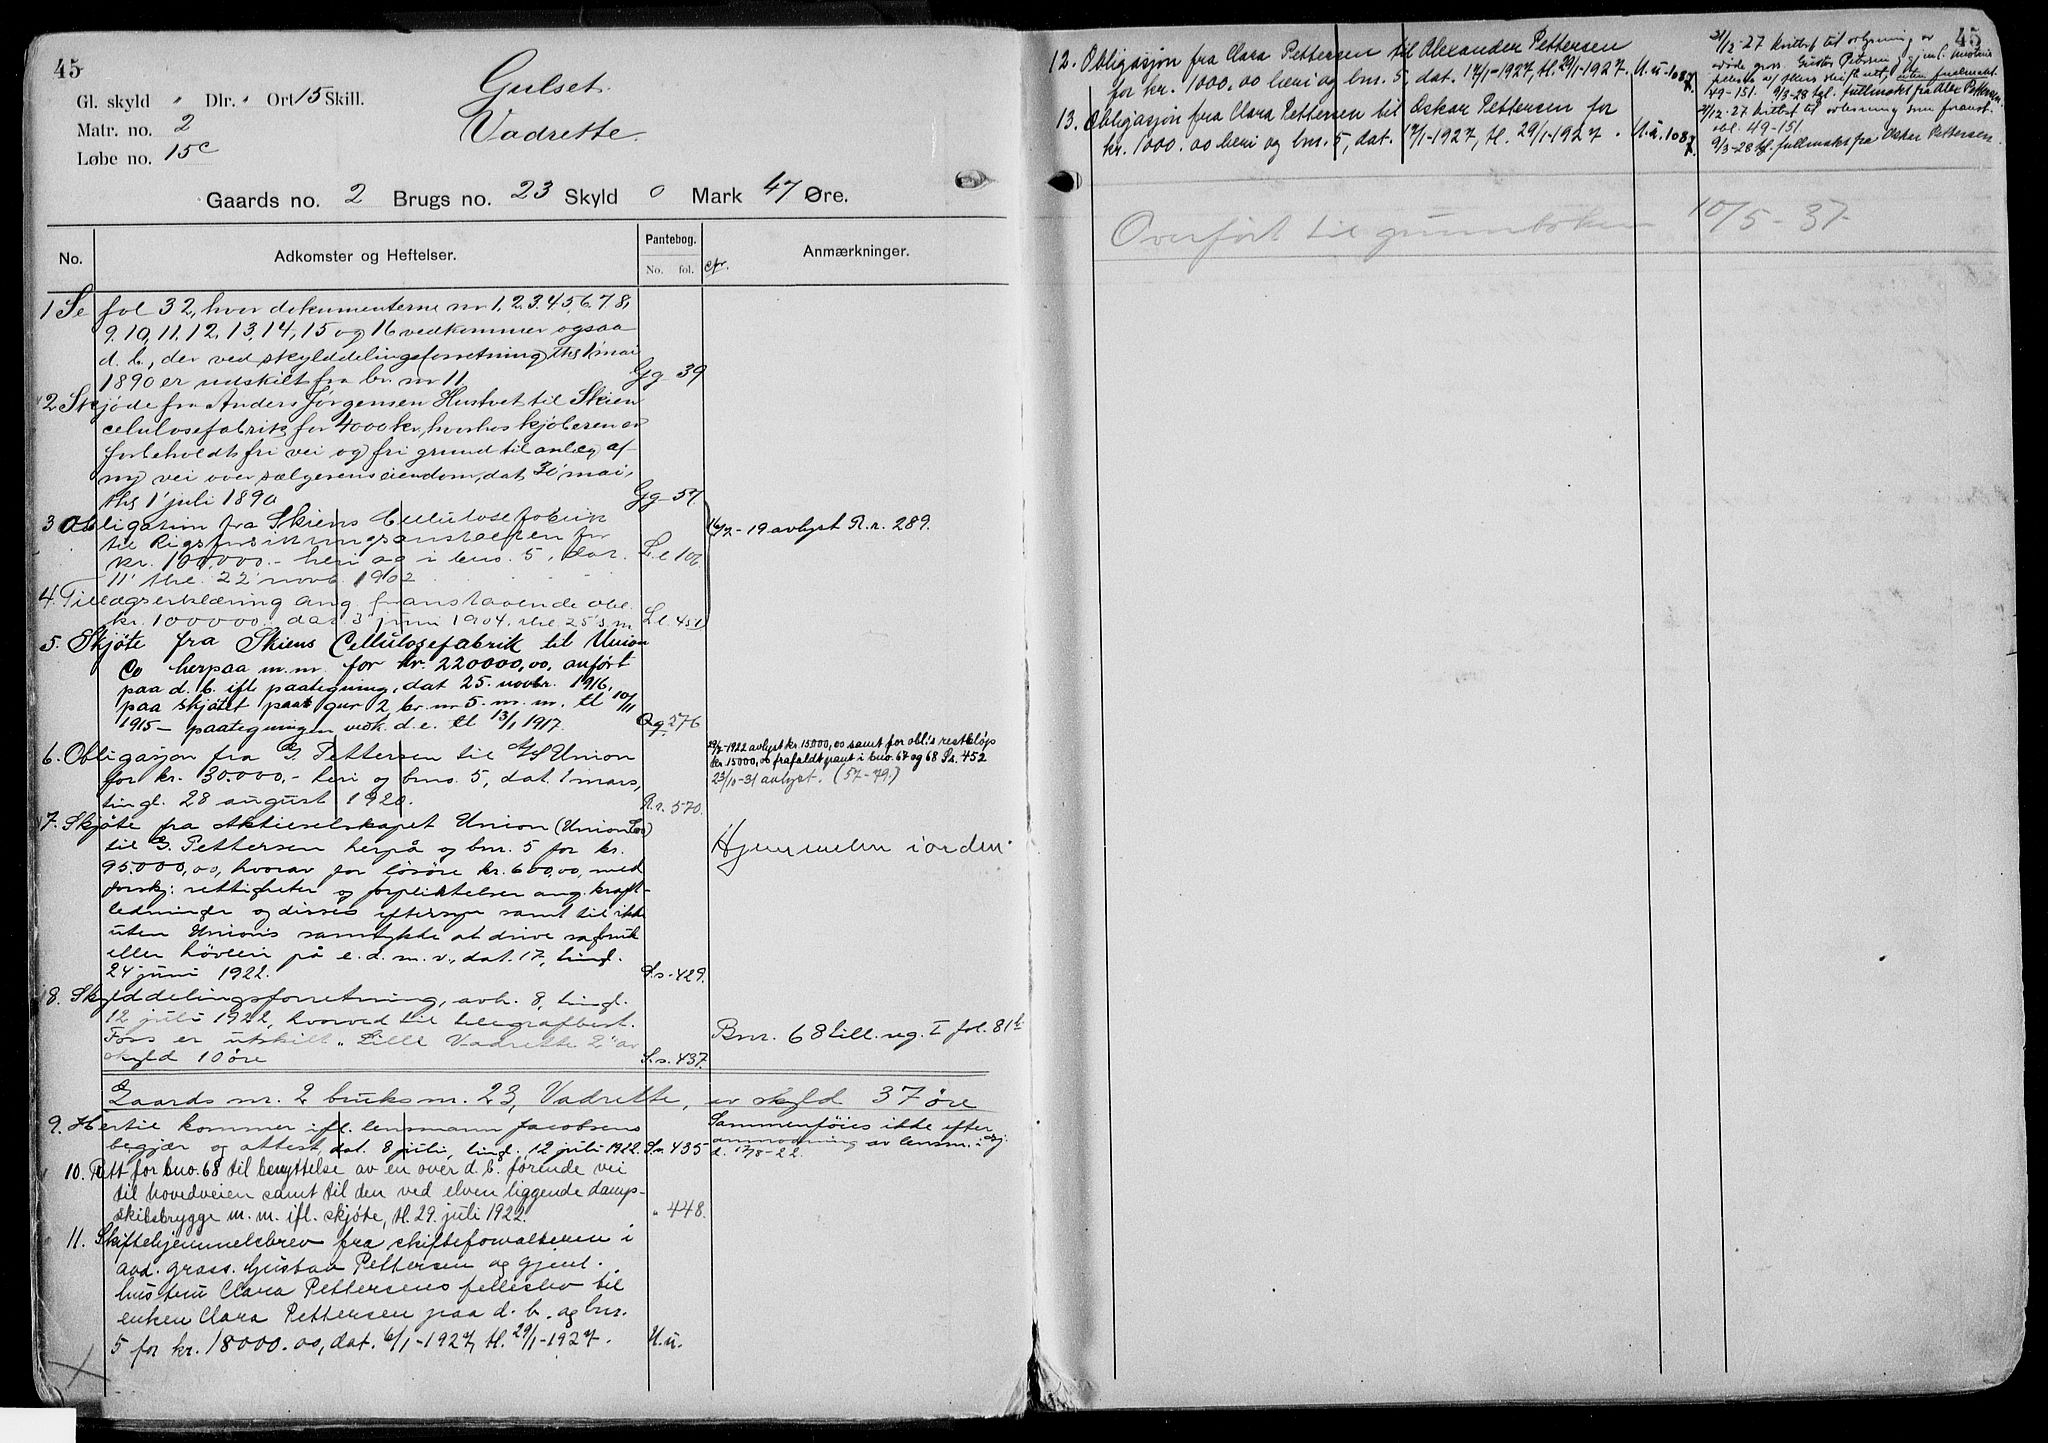 45
Gl. skyld " Dlr. " Ort 15 Skill.
Matr. no. 2
Løbe no. 15c
Gulset.
Vadrette.
Gaards no. 2 Brugs no. 23 Skyld 0 Mark 47 Øre.
No. Adkomster og Heftelser. Pantebog. No. fol. cfr. Anmærkninger.
1 Se fol 32, hvor dokumenterne nr 1, 2, 3, 4, 5, 6, 7, 8,
9, 10, 11, 12, 13, 14, 15 og 16 vedkommer ogsaa
d. b., der ved skylddelingsforretning ths 1' mai
1890 er udskilt fra br. nr 11 Gg 39
2 Skjøde fra Anders Jørgensen Hustvet til Skien
celulosefabrik for 4000 kr, hvorhos kjøberen er
forbeholdt fri vei og fri grund til anlæg af
ny vei over sælgerens eiendom, dat 30' mai,
ths 1' juli 1890 Gg 57
3 Obligation fra Skiens Cellulosefabrik
til Rigsforsikringsanstalten for
kr. 100,000.- heri og i bno. 5, dat.
11' thl. 22' novb. 1902 Ll 106
16/2-19 avlyst R.r. 289.
4. Tillægserklæring ang. foranstaaende obl.
kr. 100000. dat 3 juni 1904, thl. 25' s.m. Ll. 451
5. Skjøte fra Skiens Cellulosefabrik til Union
Co herpaa m.m. for kr. 220000,00, anført
paa d. b. ifl. paategning, dat 25. novbr. 1916,
paa skjøtet paa gnr 2 br. nr 5. m. m. tl 10/11
1915 – paategningen vedk. d. e. tl 13/1 1917. Qq. 276
6. Obligasjon fra G. Pettersen til A/S Union
for kr. 30.000,- heri og bno. 5, dat. 1 mars,
tingl. 28 august 1920. R.r. 570.
29/7-1922 avlyst kr. 15000,00 samt for obl.s restbeløp
kr 15000,00 frafaldt pant i bno. 67 og 68 Ss. 452
23/10-31 avlyst. (57-79.)
7. Skjøte fra Aktieselskapet Union (Union Co)
til G. Pettersen herpå og bnr. 5 for kr.
95.000,00, hvorav for løsøre kr. 600,00, med
forskj. rettigheter og forpliktelser ang. kraft-
ledninger og disses eftersyn samt til ikke
uten Unions samtykke at drive sagbruk
eller høvleri på e. d. m. v., dat. 17, tingl.
24 juni 1922. S.s. 429.
Hjemmelen i orden.
8. Skylddelingsforretning, avh. 8, tingl.
12 juli 1922, hvorved til telegrafbest.
Foss er utskilt "Lille Vadrette 2" av
skyld 10 øre S.s. 437.
Bnr. 68 till. reg. I fol. 81
Gaards nr. 2 bruks nr. 23, Vadrette, av skyld 37 øre
9. Hertil kommer ifl. lensmann Jacobsens
begjær og attest, dat. 8 juli, tingl. 12 juli 1922. S.s. 435
Sammenføies ikke efter
anmodning av lensm. i skj.
d. 17/8-22.
10. Rett for bno. 68 til benyttelse av en over d. b. førende vei
til hovedveien samt til den ved elven liggende damp-
skibsbrygge m. m. ifl. skjøte, tl. 29. juli 1922. " 448.
11. Skiftehjemmelsbrev fra skifteforvalteren i
avd. grass. Gustav Pettersen og gjenl.
hustru Clara Pettersens fellesbo til
enken Clara Pettersen paa d. b. og bnr.
5 for kr. 18000.00, dat. 6/1-1927, tl. 29/1-1927. U.u.
45
12. Obligasjon fra Clara Pettersen til Alexander Pettersen
for kr. 1000.00 heri og bnr. 5, dat. 17/1-1927, tl. 29/1-1927. U.u. 1087.
21/12-27 kvittert til avlysning av
avdøde grass. Gustav Pettersen og
uten fuldmakt.
49-151. 9/3-28 tgl. fullmakt fra Alex Pettersen.
13. Obligasjon fra Clara Pettersen til Oskar Pettersen for
kr. 1000.00 heri og bnr. 5, dat. 17/1-1927, tl. 29/1-1927. U.u. 1087.
21/12-27. kvittert til avlysning som foranst.
obl. 49-151.
9/3-28 tgl. fullmakt fra Oskar Pettersen.
Overført til grunnboken 10/5-37